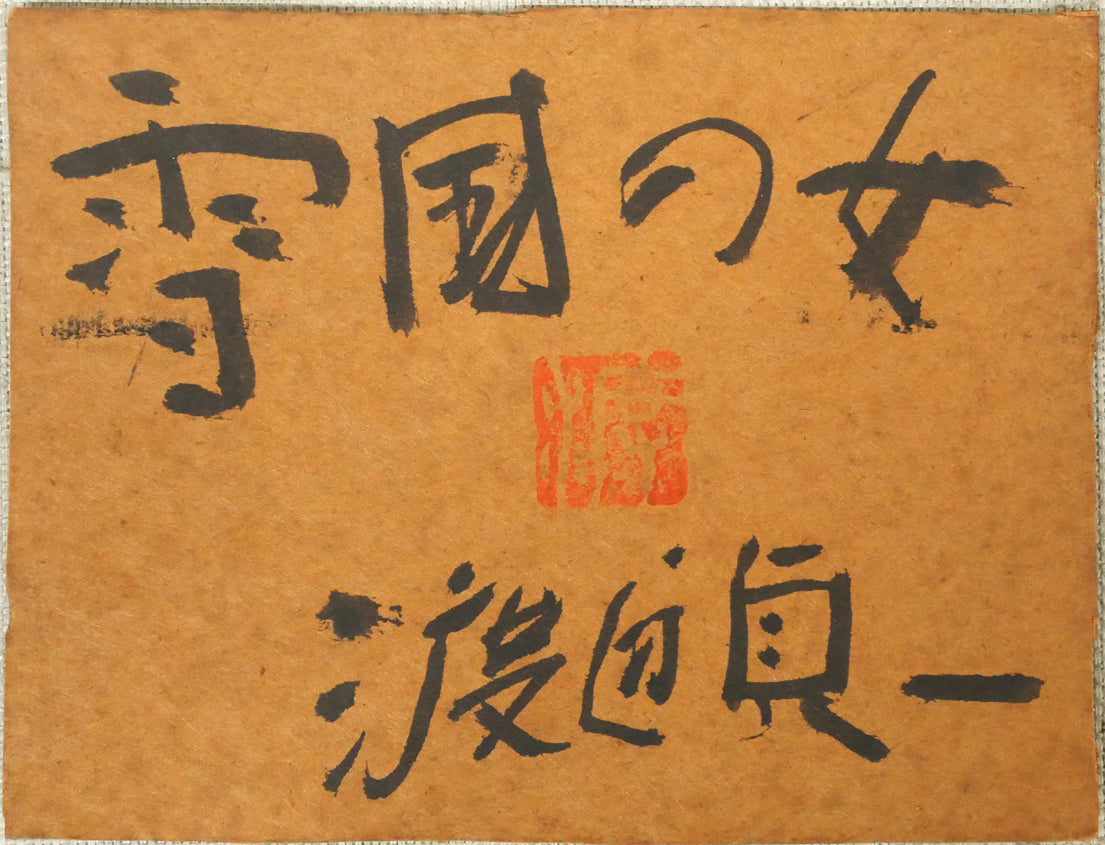 雪国の女
渡辺貞一